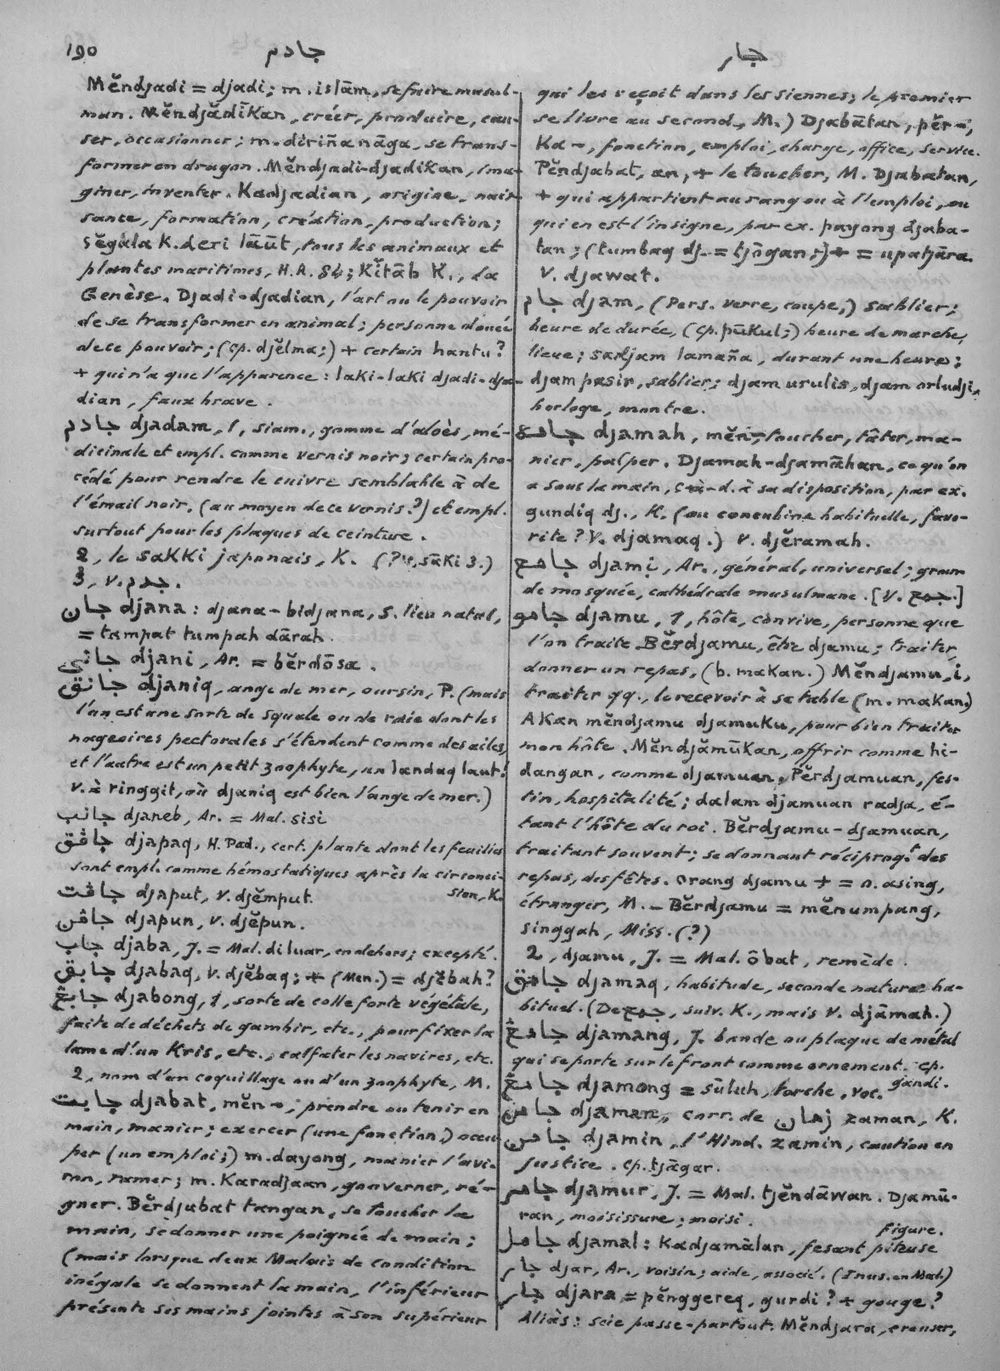 190
جادم
جار
Mĕndjadi = djadi; m. islām, se faire musul-
man. Mĕndjădīkan, créer, produire, cau-
ser, occasionner; m. diriña nāga, se trans-
former en dragon. Mĕndjadi-djadikan, ima-
giner, inventer. Kadjadian, origine, nais-
sance, formation, création, production;
sĕgala k. deri lāūt, tous les animaux et
plantes maritimes, H.A. 84; Kĭtāb K., la
Genèse. Djadi-djadian, l'art ou le pouvoir
de se transformer en animal; personne douée
de ce pouvoir; (cp. djĕlma;) + certain hantu?
+ qui n'a que l'apparence: laki-laki djadi-dja-
dian, faux brave.
جادم djadam, 1, siam., gomme d'aloès, mé-
dicinale et empl. comme vernis noir; certain pro-
cédé pour rendre le cuivre semblable à de
l'émail noir, (au moyen de ce vernis?) et empl.
surtout pour les plaques de ceinture.
2, le sakki japonais, K. (? V. sāki 3.)
3, v. جدم.
جان djana: djana-bidjana, S. lieu natal,
= tampat tumpah dārah.
جاني djani, Ar. = bĕrdōsa.
جانق djaniq, ange de mer, oursin, P. (mais
l'un est une sorte de squale ou de raie dont les
nageoires pectorales s'étendent comme des ailes,
et l'autre est un petit zoophyte, un landaq laut!
v. à ringgit, où djaniq est bien l'ange de mer.)
جانب djaneb, Ar. = Mal. sisi
جاڤق djapaq, H. Pad., cert. plante dont les feuilles
sont empl. comme hémostatiques après la circonci-
sion, K.
جاڤت djaput, v. djĕmput.
جاڤن djapun, v. djĕpun.
جاب djaba, J. = Mal. di luar, en dehors; excepté.
جابق djabaq, v. djĕbaq; + (Men.) = djĕbah?
جابڠ djabong, 1, sorte de colle forte végétale,
faite de déchets de gambir, etc., pour fixer la
lame d'un kris, etc., calfater les navires, etc.
2, nom d'un coquillage ou d'un zoophyte, M.
جابت djabat, mĕn-, prendre ou tenir en
main, manier; exercer (une fonction,) occu-
per (un emploi;) m. dayong, manier l'avi-
ron, ramer; m. karadjaan, gouverner, ré-
gner. Bĕrdjabat tangan, se toucher la
main, se donner une poignée de main;
(mais lorsque deux Malais de condition
inégale se donnent la main, l'inférieur
présente ses mains jointes à son supérieur
qui les reçoit dans les siennes; le premier
se livre au second, M.) Djabātan, pĕr-,
ka-, fonction, emploi, charge, office, service.
Pĕndjabat, an, + le toucher, M. Djabatan,
+ qui appartient au rang ou à l'emploi, ou
qui en est l'insigne, par ex. payong djaba-
tan; (tumbaq dj. = tjōgan;) + = upatjāra.
V. djawat.
جام djam, (Pers. verre, coupe,) sablier;
heure de durée, (cp. pūkul;) heure de marche,
lieue; sadjam lamaña, durant une heure;
djam pasir, sablier; djam urulis, djam orludji,
horloge, montre.
جامه djamah, mĕn-, toucher, tâter, ma-
nier, palper. Djamah-djamāhan, ce qu'on
a sous la main, c-à-d. à sa disposition, par ex.
gundiq dj., K. (ou concubine habituelle, favo-
rite? V. djamaq.) V. djĕramah.
جامع djami, Ar., général, universel; gram
de mosquée, cathédrale musulmane. [V. جمع.]
جامو djamu, 1, hôte, convive, personne que
l'on traite. Bĕrdjamu, être djamu; traiter,
donner un repas, (b. makan.) Mĕndjamu, i,
traiter qq., le recevoir à sa table (m. makan.)
Akan mĕndjamu djamuku, pour bien traiter
mon hôte. Mĕndjămūkan, offrir comme hi-
dangan, comme djamuan. Pĕrdjamuan, fes-
tin, hospitalité; dalam djamuan radja, é-
tant l'hôte du roi. Bĕrdjamu-djamuan,
traitant souvent; se donnant réciproqt. des
repas, des fêtes. Orang djamu + = o. asing,
étranger, M. - Bĕrdjamu = mĕnumpang,
singgah, Miss. (?)
2, djamu, J. = Mal. ôbat, remède.
جامق djamaq, habitude, seconde nature; ha-
bituel. (De جمع, suiv. K., mais v. djāmah.)
جامڠ djamang, J. bande ou plaque de métal
qui se porte sur le front comme ornement. Cp.
gandi.
جامڠ djamong = sūluh, torche, voc.
جامن djaman, corr. de زمان zaman, K.
جامن djamin, l'Hind. zamin, caution en
justice. Cp. tjāgar.
جامر djamur, J. = Mal. tjĕndāwan. Djamū-
ran, moisissure; moisi.
جامل djamal: kadjamālan, fesant piteuse
figure.
جار djar, Ar., voisin; aide, associé. (Inus. en Mal.)
جار djara = pĕnggereq, gurdi? + gouge?
Aliàs: scie passe-partout. Mĕndjara, creuser,